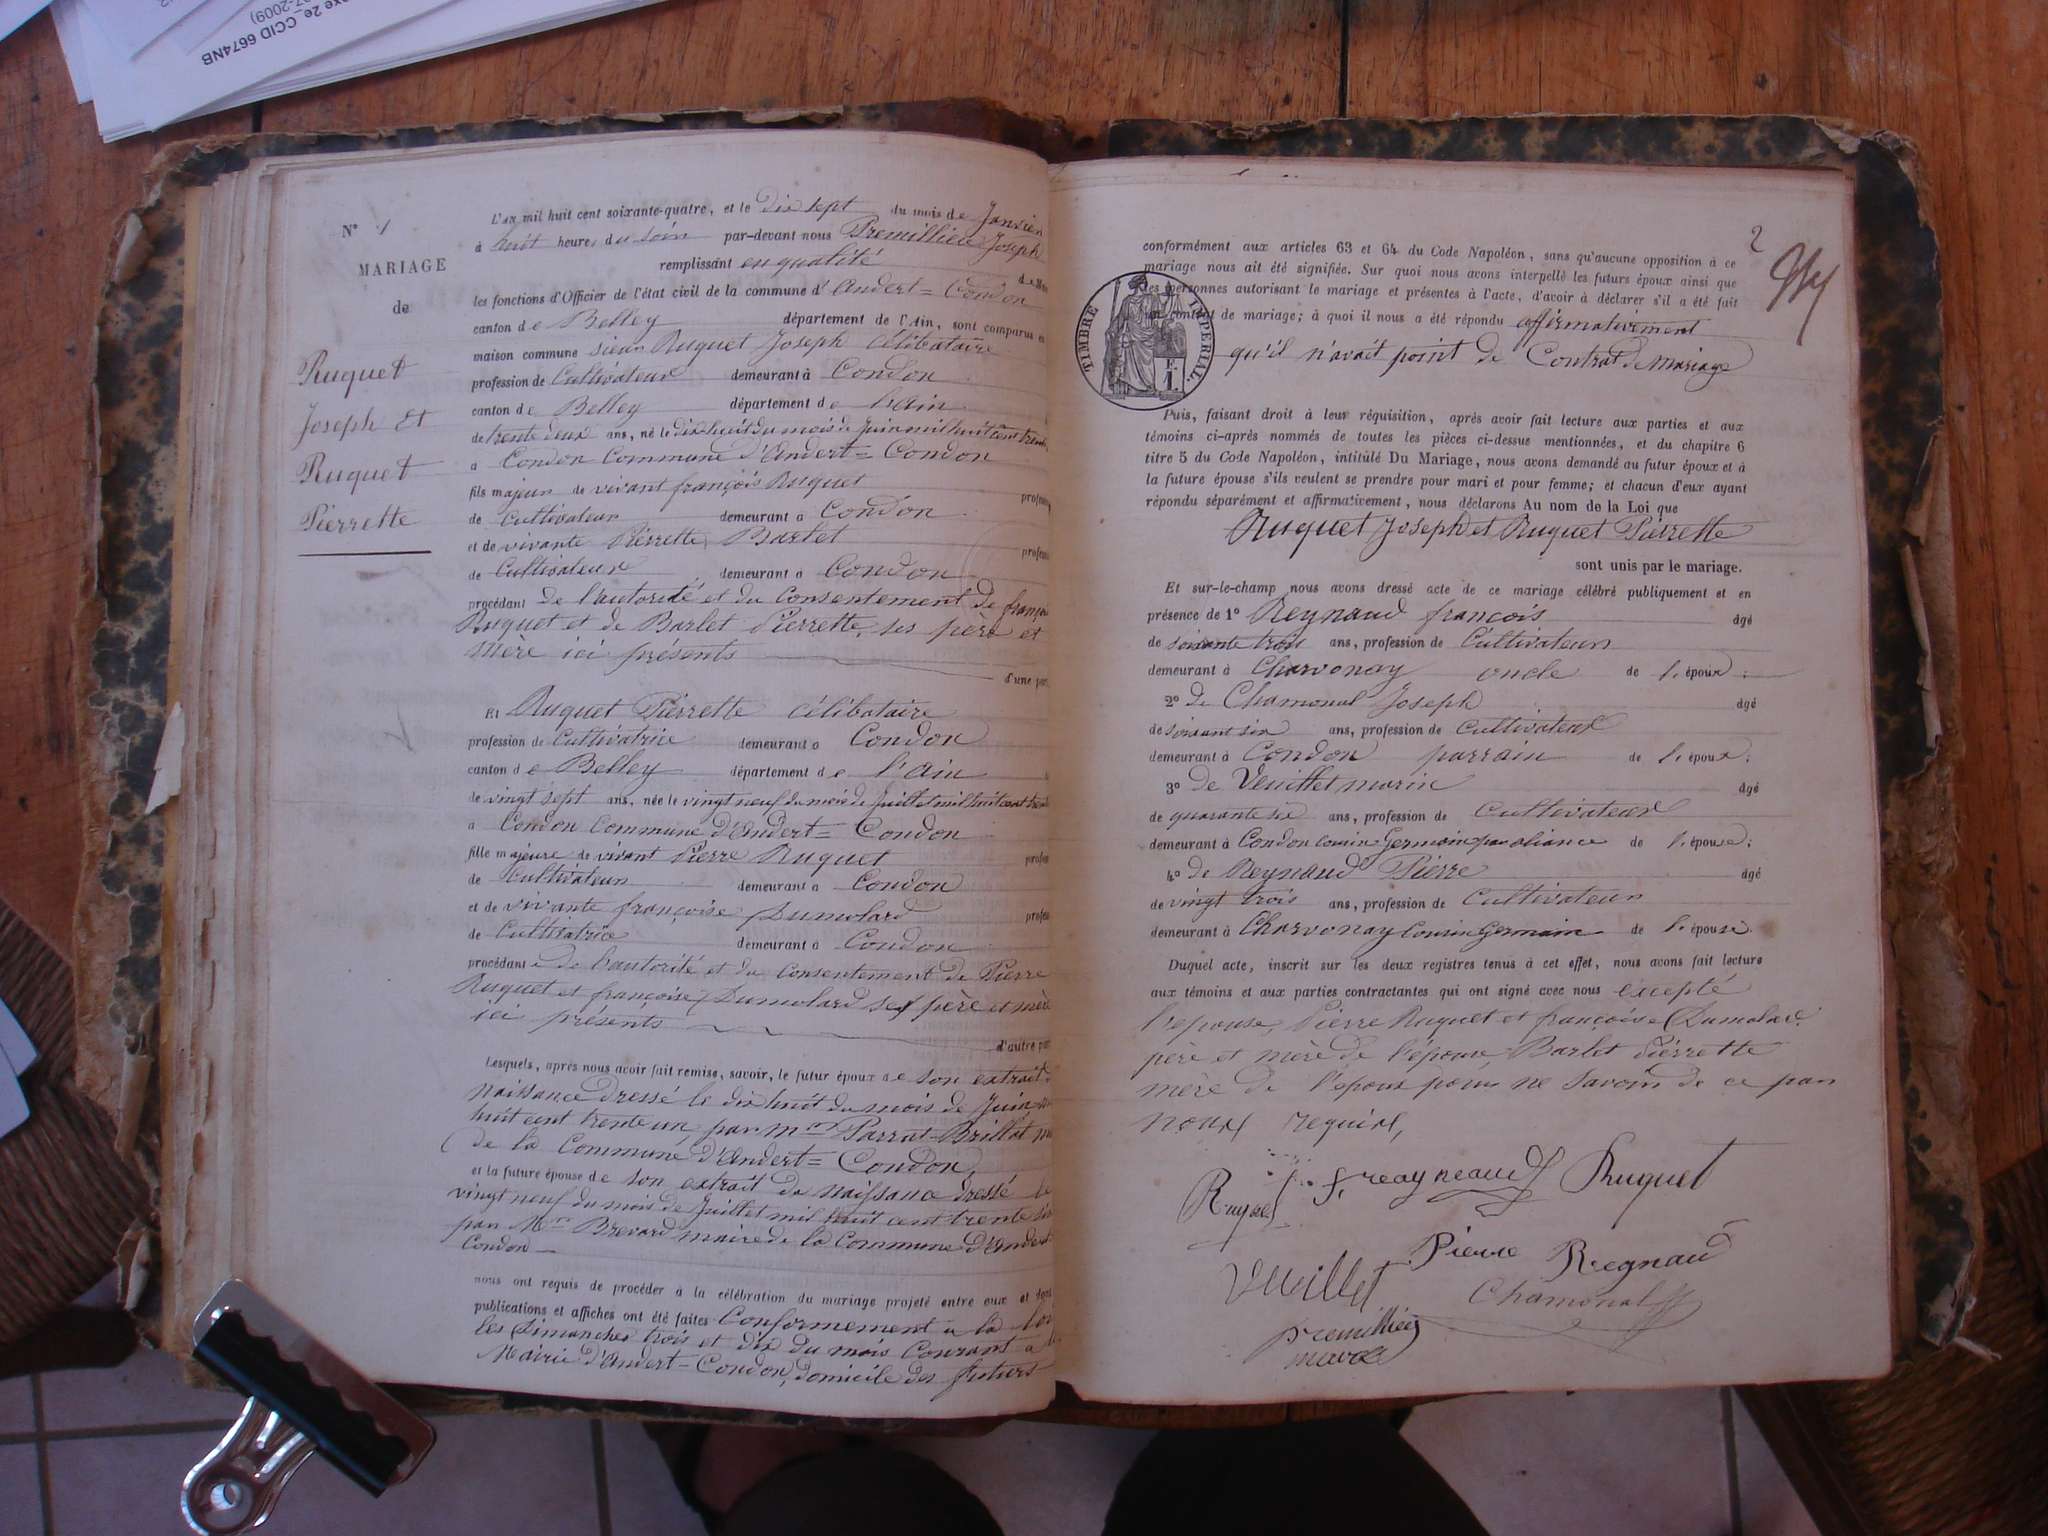 xe 2e. CCID 6674NB
7-2009)
N° 1
MARIAGE
de
Ruguet
Joseph Et
Ruguet
Pierrette
L'AN mil huit cent soixante-quatre, et le dix sept du mois de Janvier
à huit heures du soir par-devant nous Premillieu Joseph
remplissant en qualité
les fonctions d'Officier de l'état civil de la commune d'Andert=Condon
canton de Belley département de l'Ain, sont comparus en
maison commune sieur Ruguet Joseph célibataire
profession de Cultivateur demeurant à Condon
canton de Belley département de l'Ain
de trente deux ans, né le dix huit du mois de Juin mil huit cent trente
à Condon Commune d'Andert=Condon
fils majeur de vivant françois Ruguet
profession
de Cultivateur demeurant à Condon
et de vivante Pierrette Barlet
de Cultivateur demeurant à Condon
procédant de l'autorité et du Consentement de françois
Ruguet et de Barlet Pierrette, ses père et
Mère ici présents
d'une part
Et Ruguet Pierrette célibataire
profession de Cultivatrice demeurant à Condon
canton de Belley département de l'Ain
de vingt sept ans, née le vingt neuf du mois de Juillet mil huit cent trente
à Condon Commune d'Andert=Condon
fille majeure de vivant Pierre Ruguet
de Cultivateur demeurant à Condon
et de vivante françoise Dumolard
de Cultivatrice demeurant à Condon
procédante de l'autorité et du consentement de Pierre
Ruguet et françoise Dumolard ses père et mère
ici présents
d'autre part
Lesquels, après nous avoir fait remise, savoir, le futur époux de son extrait de
Naissance dressé le dix huit du mois de Juin
huit cent trente un, par Mr Parrat-Brillat
de la Commune d'Andert=Condon,
et la future épouse de son extrait de naissance dressé le
vingt neuf du mois de Juillet mil huit cent trente six
par Mr Brevard maire de la Commune d'Andert
Condon
nous ont requis de procéder à la célébration du mariage projeté entre eux et dont
publications et affiches ont été faites Conformement à la loi
les Dimanches trois et dix du mois Courant à la
Mairie d'Andert=Condon, domicile des futurs
2
conformément aux articles 63 et 64 du Code Napoléon, sans qu'aucune opposition à ce
mariage nous ait été signifiée. Sur quoi nous avons interpellé les futurs époux ainsi que
les personnes autorisant le mariage et présentes à l'acte, d'avoir à déclarer s'il a été fait
un contrat de mariage; à quoi il nous a été répondu affirmativement
qu'il n'avait point de Contrat de mariage
TIMBRE IMPERIAL.
F.
1.
Puis, faisant droit à leur réquisition, après avoir fait lecture aux parties et aux
témoins ci-après nommés de toutes les pièces ci-dessus mentionnées, et du chapitre 6
titre 5 du Code Napoléon, intitulé Du Mariage, nous avons demandé au futur époux et à
la future épouse s'ils veulent se prendre pour mari et pour femme; et chacun d'eux ayant
répondu séparément et affirmativement, nous déclarons Au nom de la Loi que
Ruguet Joseph et Ruguet Pierrette
sont unis par le mariage.
Et sur-le-champ nous avons dressé acte de ce mariage célébré publiquement et en
présence de 1° Reynaud françois âgé
de soixante trois ans, profession de Cultivateur
demeurant à Charvonay oncle de l'époux;
2° de Chamonal Joseph âgé
de soixant six ans, profession de Cultivateur
demeurant à Condon parrain de l'époux;
3° de Veuillet marin âgé
de quarante six ans, profession de Cultivateur
demeurant à Condon Cousin Germain par aliance de l'épouse;
4° de Reynaud Pierre âgé
de vingt trois ans, profession de Cultivateur
demeurant à Charvonay Cousin Germain de l'épouse.
Duquel acte, inscrit sur les deux registres tenus à cet effet, nous avons fait lecture
aux témoins et aux parties contractantes qui ont signé avec nous éxcepté
l'épouse, Pierre Ruguet et françoise Dumolard
père et mère de l'épouse, Barlet Pierrette
mère de l'époux pour ne savoir de ce par
nous requis,
Ruguet Ruguet
Pierre Regnaud
Vuillet
Chamonal
Premillieu